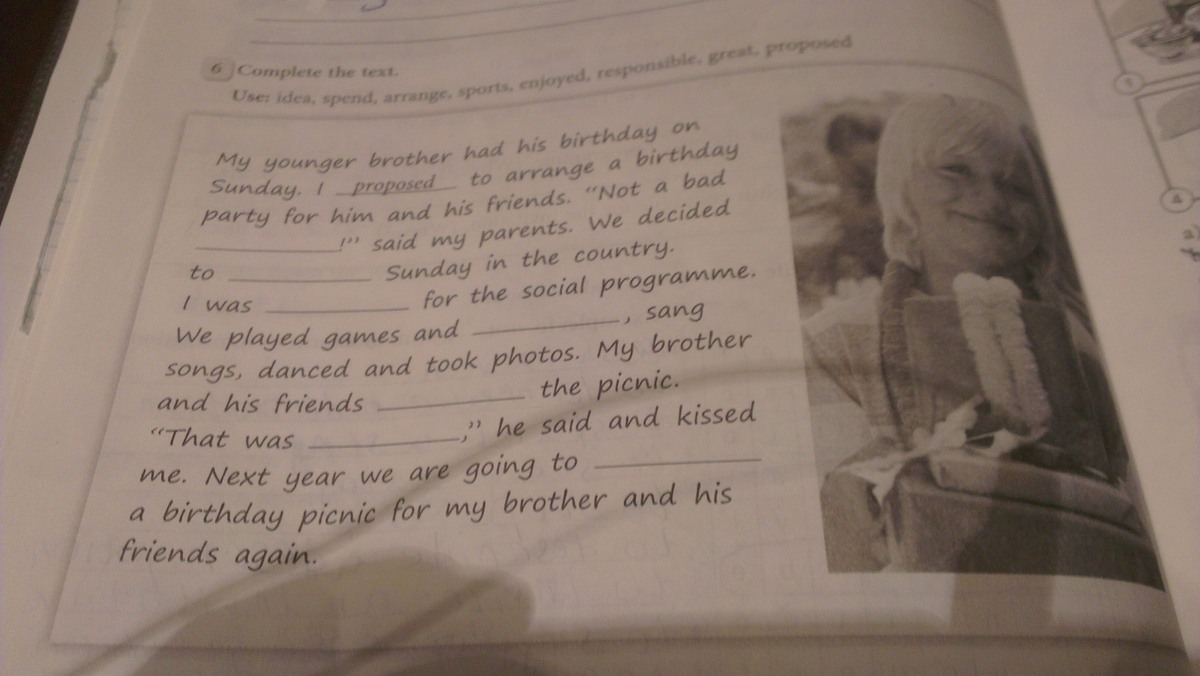 6 Complete the text.
Use: idea, spend, arrange, sports, enjoyed, responsible, great, proposed
My younger brother had his birthday on
Sunday. I proposed to arrange a birthday
party for him and his friends. “Not a bad
____________!” said my parents. We decided
to ____________ Sunday in the country.
I was ____________ for the social programme.
We played games and ____________, sang
songs, danced and took photos. My brother
and his friends ____________ the picnic.
“That was ____________,” he said and kissed
me. Next year we are going to ____________
a birthday picnic for my brother and his
friends again.
1
4